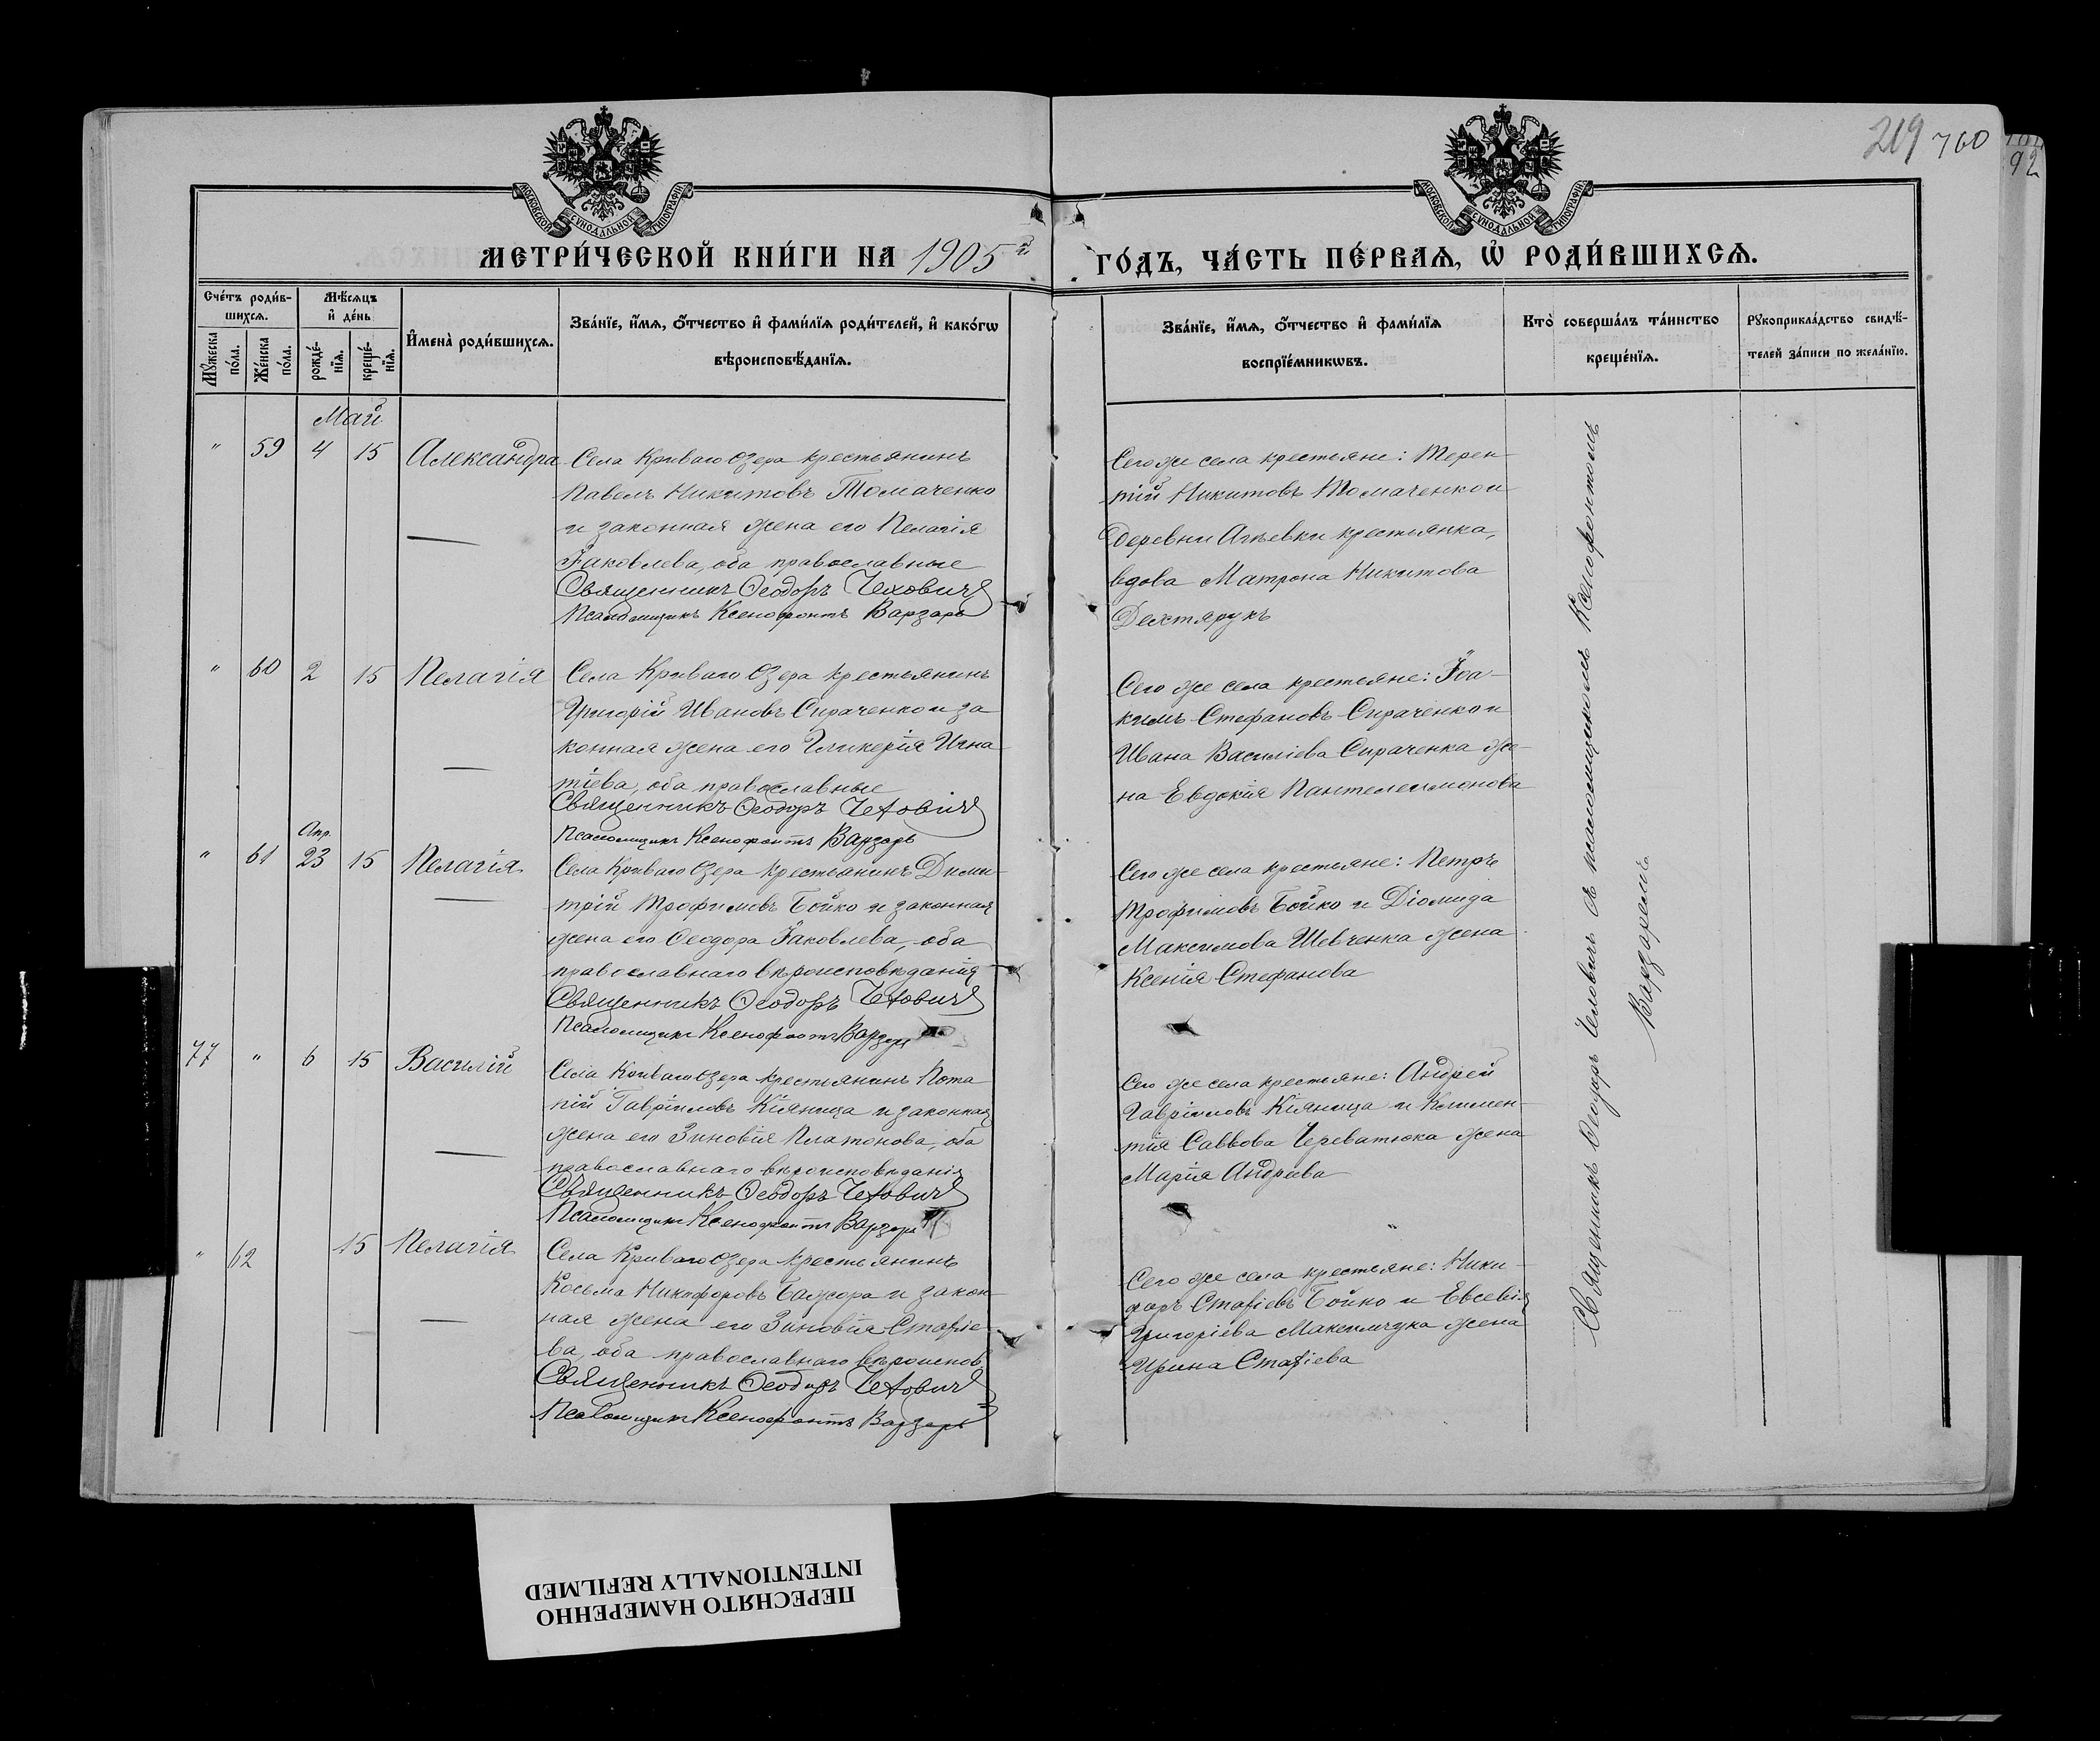 219 760
92
МОСКОВСКОЙ СѴНОДАЛЬНОЙ ТИПОГРАФІИ
МОСКОВСКОЙ СѴНОДАЛЬНОЙ ТИПОГРАФІИ
МЕТРИ́ЧЕСКОЙ КНИ́ГИ НА 1905й ГО́ДЪ, ЧА́СТЬ ПЕ́РВАѦ, Ѡ҆ РОДИ́ВШИХСѦ.
Сче́тъ роди́в-
шихсѧ.
Мꙋ́жеска по́ла.
Же́нска по́ла.
Мѣ́сѧцъ
и҆ де́нь
рожде́-
нїѧ.
креще́-
нїѧ.
И҆мена̀ роди́вшихсѧ.
Зва́нїе, и҆́мѧ, ѻ҆́тчество и҆ фами́лїѧ роди́телей, и҆ како́гѡ
вѣроисповѣ́данїѧ.
Зва́нїе, и҆́мѧ, ѻ҆́тчество и҆ фами́лїѧ
воспрїе́мникѡвъ.
Кто̀ соверша́лъ та́инство
креще́нїѧ.
Рꙋкоприкла́дство свидѣ́-
телей за́писи по жела́нїю.
Май
" 59 4 15 Александра
Села Криваго Озера крестьянинъ
Павелъ Никитовъ Томаченко
и законная жена его Пелагія
Іаковлева, оба православные
Священникъ Ѳеодоръ Чехович
Псаломщикъ Ксенофонтъ Варзарь
Сего же села крестьяне: Терен-
тій Никитовъ Томаченко и
деревни Агѣевки крестьянка,
вдова Матрона Никитова
Дехтярукъ
" 60 2 15 Пелагія
Села Криваго Озера крестьянинъ
Григорій Ивановъ Сираченко и за
конная жена его Гликерія Игна
тіева, оба православные
Священникъ Ѳеодоръ Чехович
Псаломщикъ Ксенофонтъ Варзарь
Сего же села крестьяне: Іоа-
кимъ Стефановъ Сираченко и
Ивана Василіева Сираченка же-
на Евдокія Пантелеимонова
Апр.
" 61 23 15 Пелагія
Села Криваго Озера крестьянинъ Дими-
трій Трофимовъ Бойко и законная
жена его Ѳеодора Іаковлева, оба
православнаго вѣроисповѣданія
Священникъ Ѳеодоръ Чехович
Псаломщикъ Ксенофонтъ Варзарь
Сего же села крестьяне: Петръ
Трофимовъ Бойко и Діомида
Максимова Шевченка жена
Ксенія Стефанова
77 " 6 15 Василій
Села Криваго Озера крестьянинъ Пота
пій Гавріиловъ Кіяница и законная
жена его Зиновія Платонова, оба
православнаго вѣроисповѣданія
Священникъ Ѳеодоръ Чехович
Псаломщикъ Ксенофонтъ Варзарь
Сего же села крестьяне: Андрей
Гавріиловъ Кіяница и Климен-
тія Саввова Череватюка жена
Марія Андреева
" 62 15 Пелагія
Села Криваго Озера крестьянинъ
Косьма Никифоровъ Бажора и закон-
ная жена его Зиновія Стафіе
ва, оба православнаго вѣроиспов.
Священникъ Ѳеодоръ Чехович
Псаломщикъ Ксенофонтъ Варзарь
Сего же села крестьяне: Ники-
форъ Стафіевъ Бойко и Евсевія
Григоріева Максимчука жена
Ирина Стафіева
Священникъ Ѳеодоръ Чеховичъ съ псаломщикомъ Ксенофонтомъ
Варзаремъ
ПЕРЕСНЯТО НАМЕРЕННО
INTENTIONALLY REFILMED